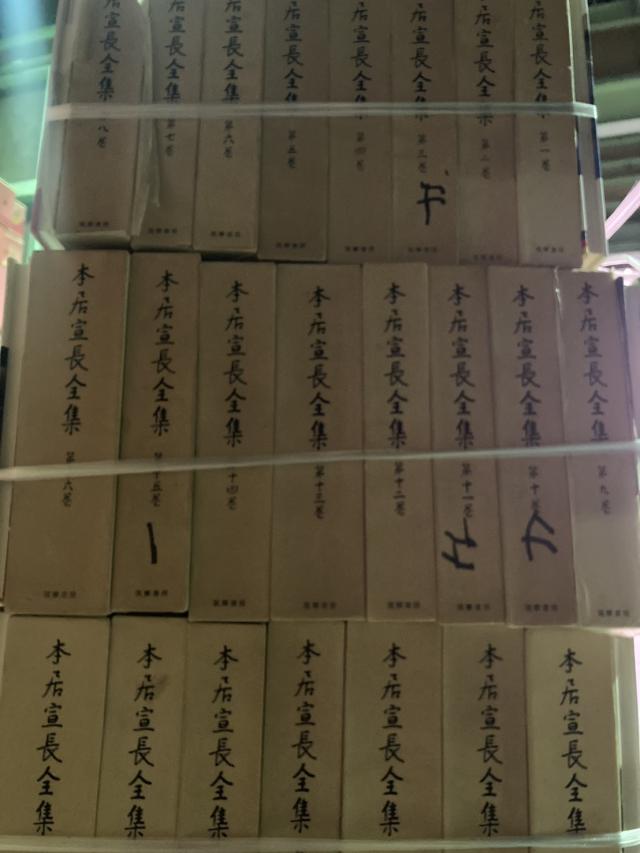 本居宣長全集 第一巻 筑摩書房
本居宣長全集 第二巻 筑摩書房
本居宣長全集 第三巻 筑摩書房
本居宣長全集 第四巻 筑摩書房
本居宣長全集 第五巻 筑摩書房
本居宣長全集 第六巻 筑摩書房
本居宣長全集 第七巻 筑摩書房
本居宣長全集 八巻 筑摩書房
本居宣長全集 第九巻 筑摩書房
本居宣長全集 第十巻 筑摩書房
本居宣長全集 第十一巻 筑摩書房
本居宣長全集 第十二巻 筑摩書房
本居宣長全集 第十三巻 筑摩書房
本居宣長全集 十四巻 筑摩書房
本居宣長全集 第十五巻 筑摩書房
本居宣長全集 第六巻 筑摩書房
本居宣長全集
本居宣長全集
本居宣長全集
本居宣長全集
本居宣長全集
本居宣長全集
本居宣長全集